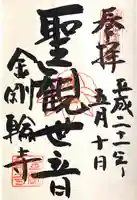 奉拝
平成二十二年
五月十日
聖観世音
金剛輪寺